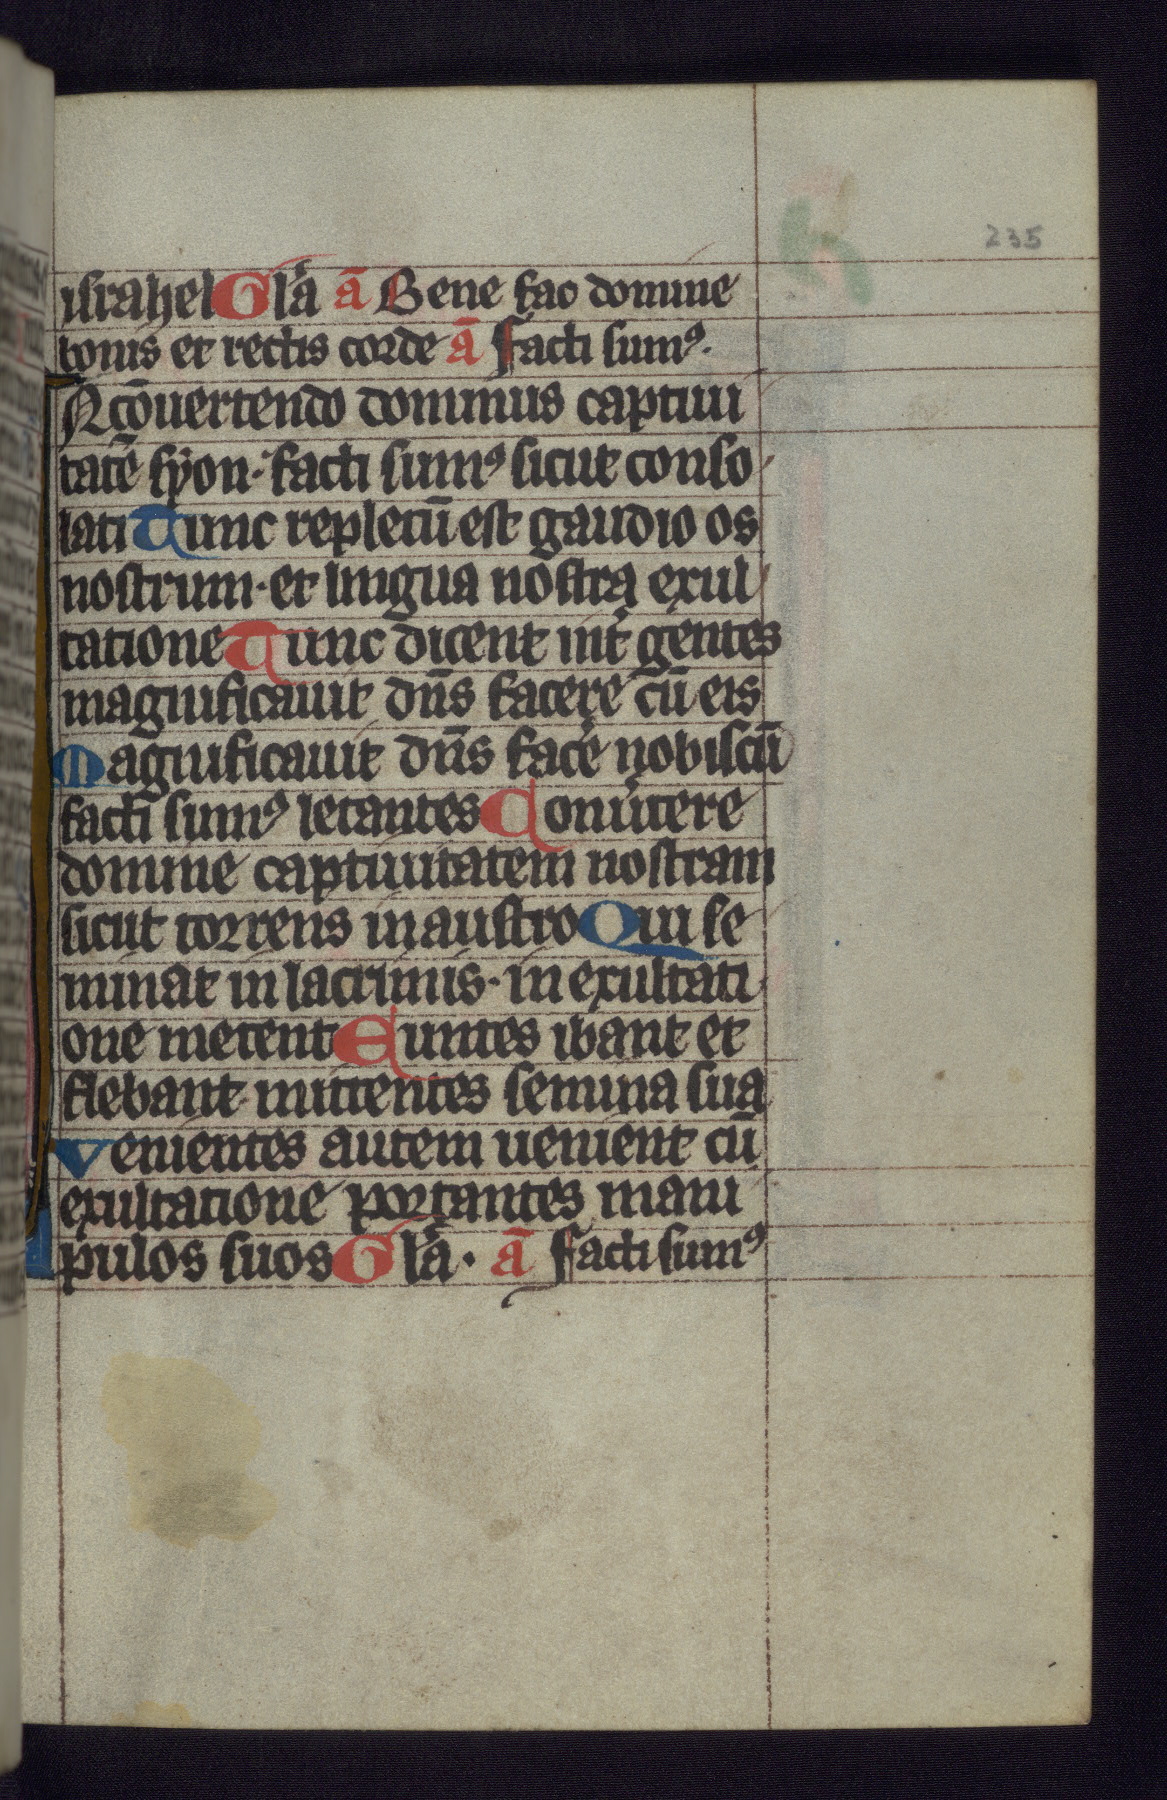 235
israhel Gl'a ā Bene fac domine
bonis et rectis corde ā Facti sumꝰ.
N cōuertendo dominus captiui
tatē syon· facti sumꝰ sicut conso
lati Tunc repletū est gaudio os
nostrum· et lingua nostra exul
tatione Tunc dicent int' gentes
magnificauit dn̄s facere cū eis
Magnificauit dn̄s face' nobiscū
facti sumꝰ letantes Conu'tere
domine captiuitatem nostram
sicut torrens in austro Qui se
minat in lacrimis· in exultati
one metent Euntes ibant et
flebant· mittentes semina sua
Venientes autem uenient cū
exultatione portantes mani
pulos suos Gl'a· ā Facti sumꝰ